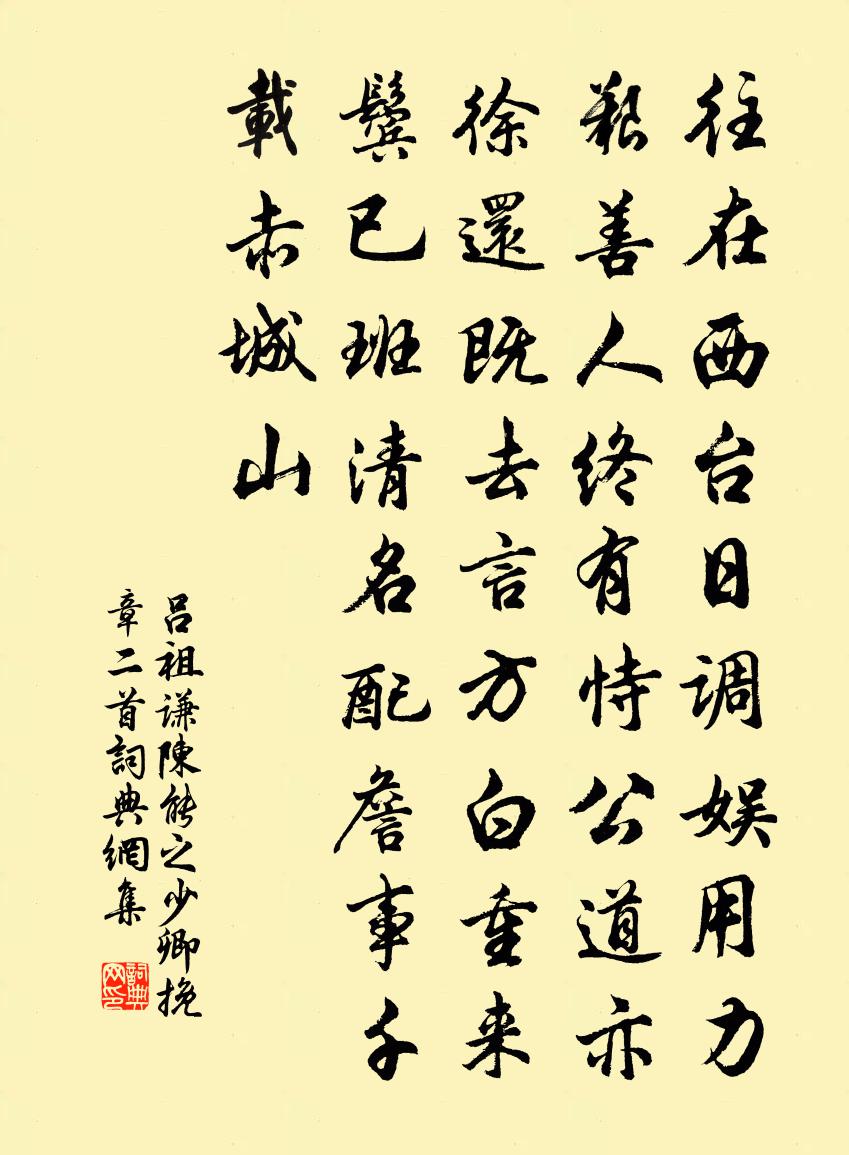 往在西台日调娱用力
艰善人终有恃公道亦
徐還既去言方白重来
鬓已班清名配詹事千
載赤城山
吕祖谦陳能之少卿挽
章二首詞典網集
詞典网印